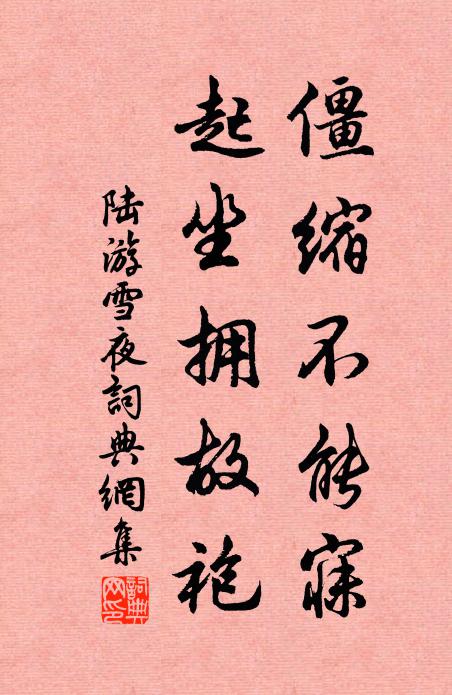 僵缩不能寐
起坐拥故袍
陆游雪夜詞典網集
詞典网印